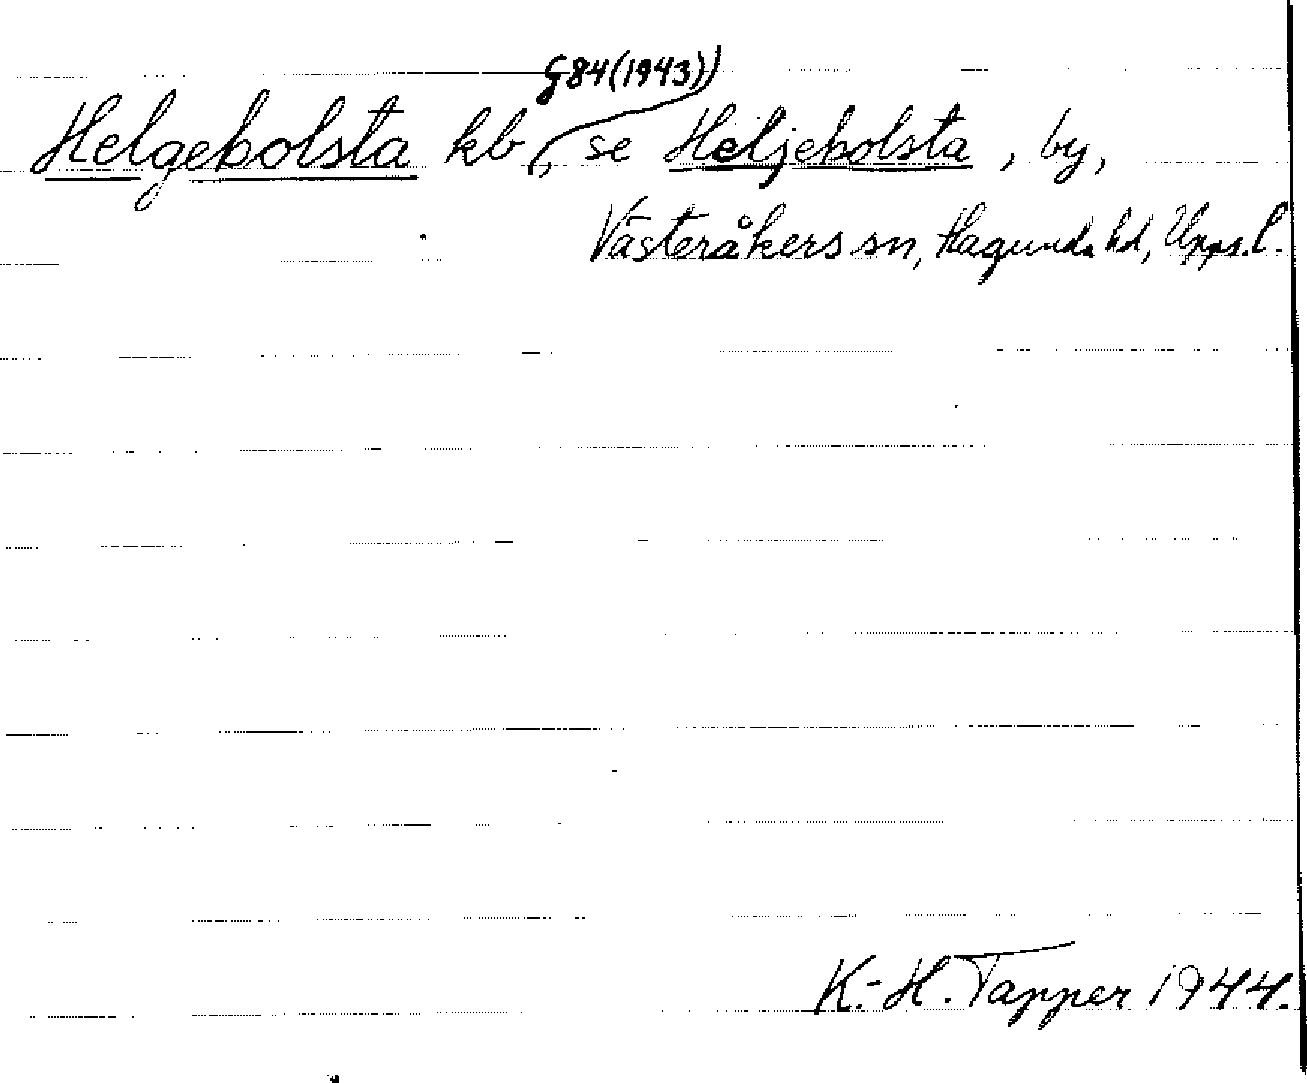 G84(1943))
Helgebolsta kb, se Heljebolsta, by,
Västeråkers sn, Hagunda hd, Upps. l.
K.-H. Tapper 1944.